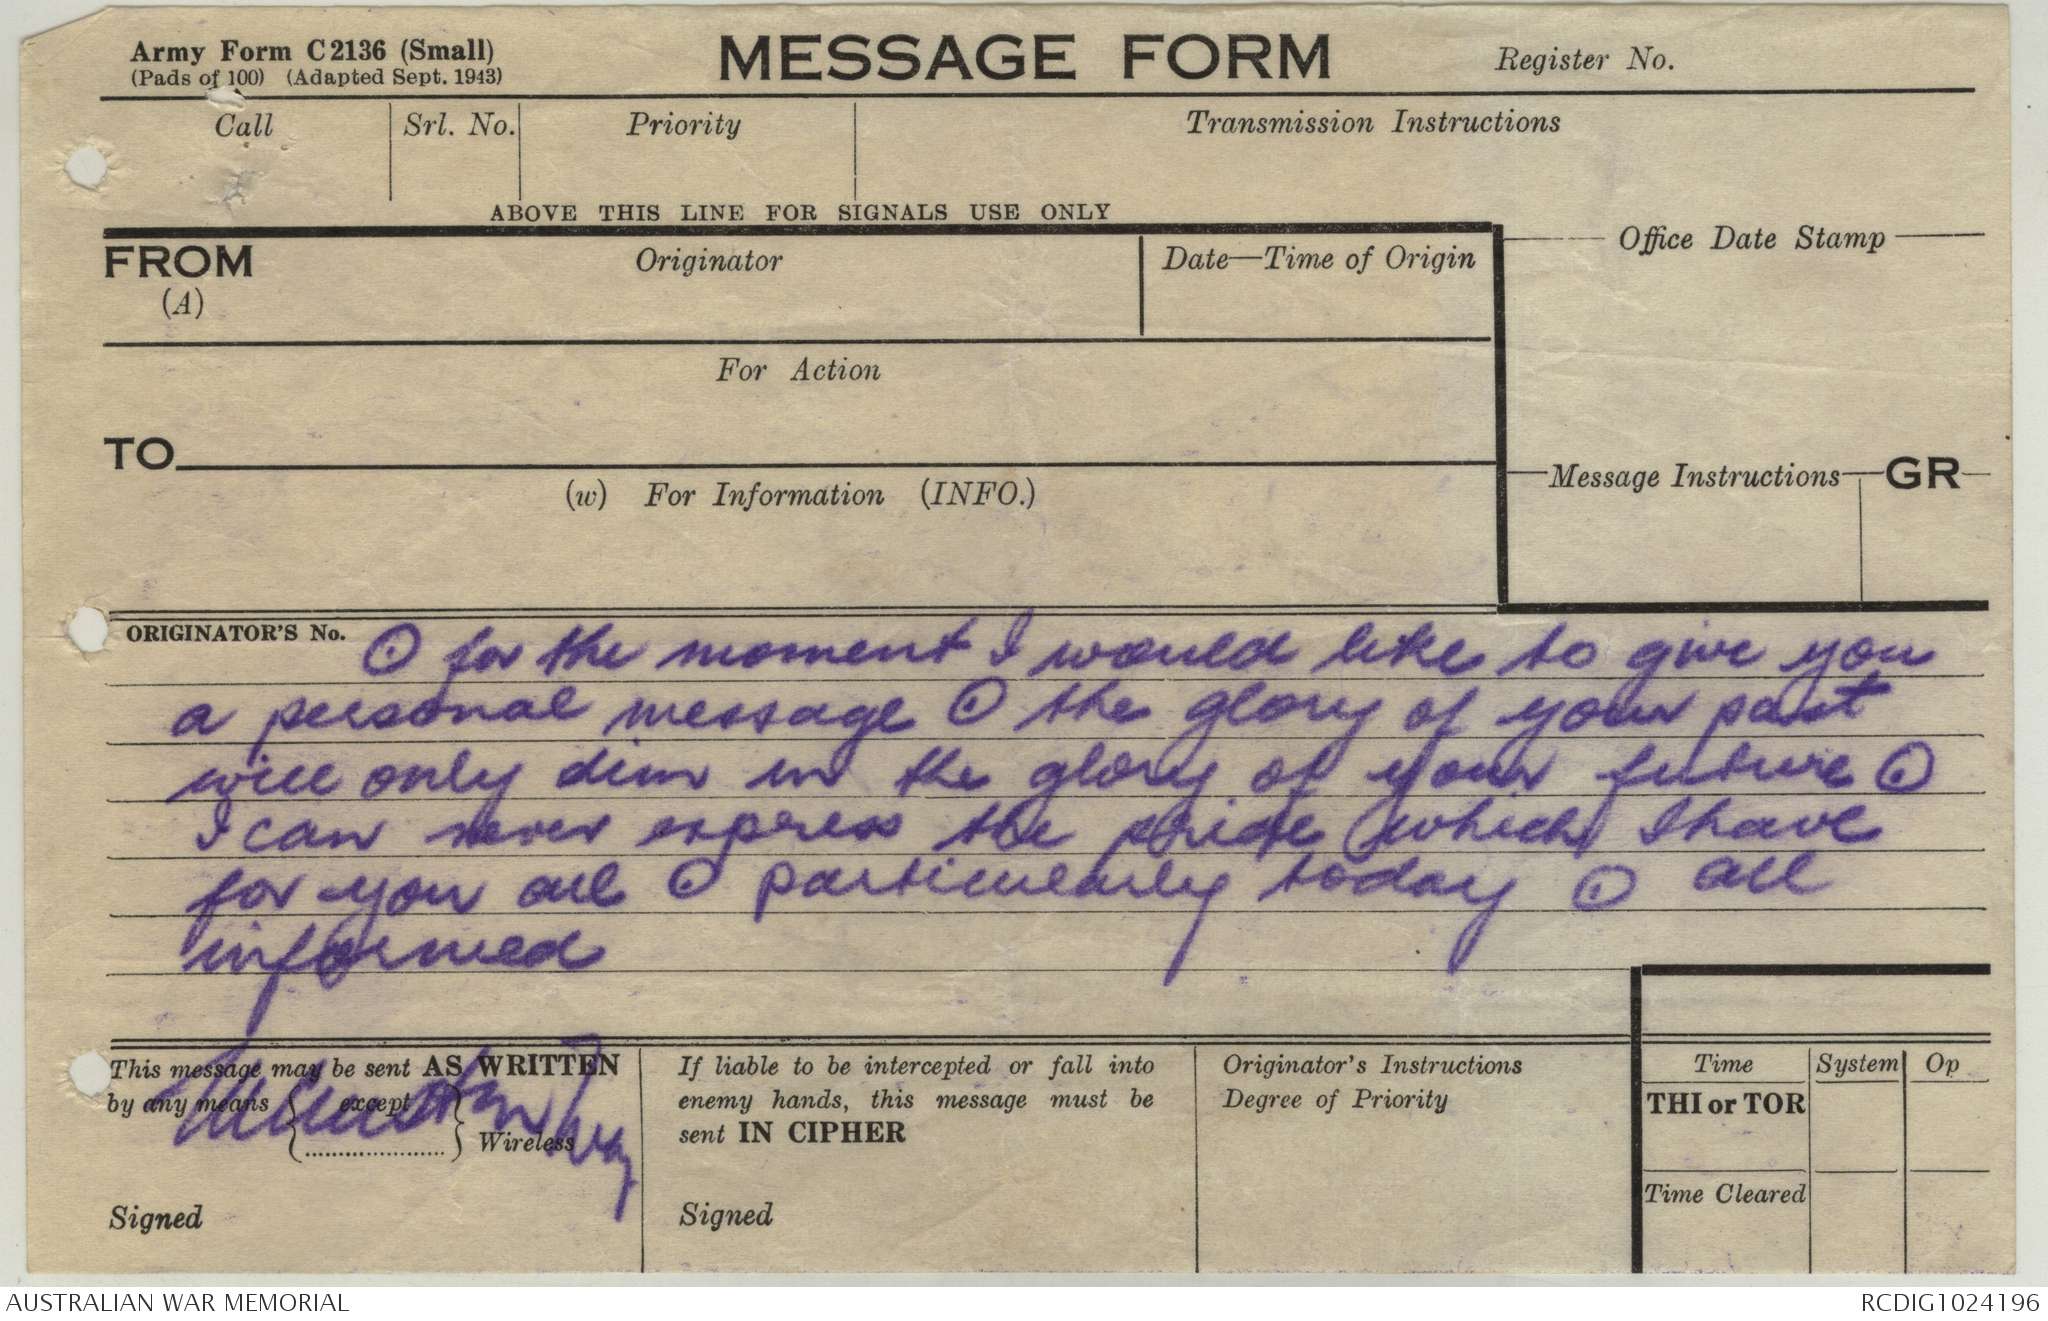 Army Form C2136 (Small)
(Pads of 100) (Adapted Sept. 1943)
MESSAGE FORM
Register No.
Call
Srl. No.
Priority
Transmission Instructions
ABOVE THIS LINE FOR SIGNALS USE ONLY
FROM
(A)
Originator
Date—Time of Origin
Office Date Stamp
For Action
TO
(w) For Information (INFO.)
Message Instructions
GR
ORIGINATOR'S No.
⊙ for the moment I would like to give you
a personal message ⊙ the glory of your past
will only dim in the glory of your future ⊙
I can never express the pride which I have
for you all ⊙ particularly today ⊙ all
informed
This message may be sent AS WRITTEN
by any means
except
Wireless
Signed
If liable to be intercepted or fall into
enemy hands, this message must be
sent IN CIPHER
Signed
Originator's Instructions
Degree of Priority
Time
System
Op
THI or TOR
Time Cleared
AUSTRALIAN WAR MEMORIAL
RCDIG1024196